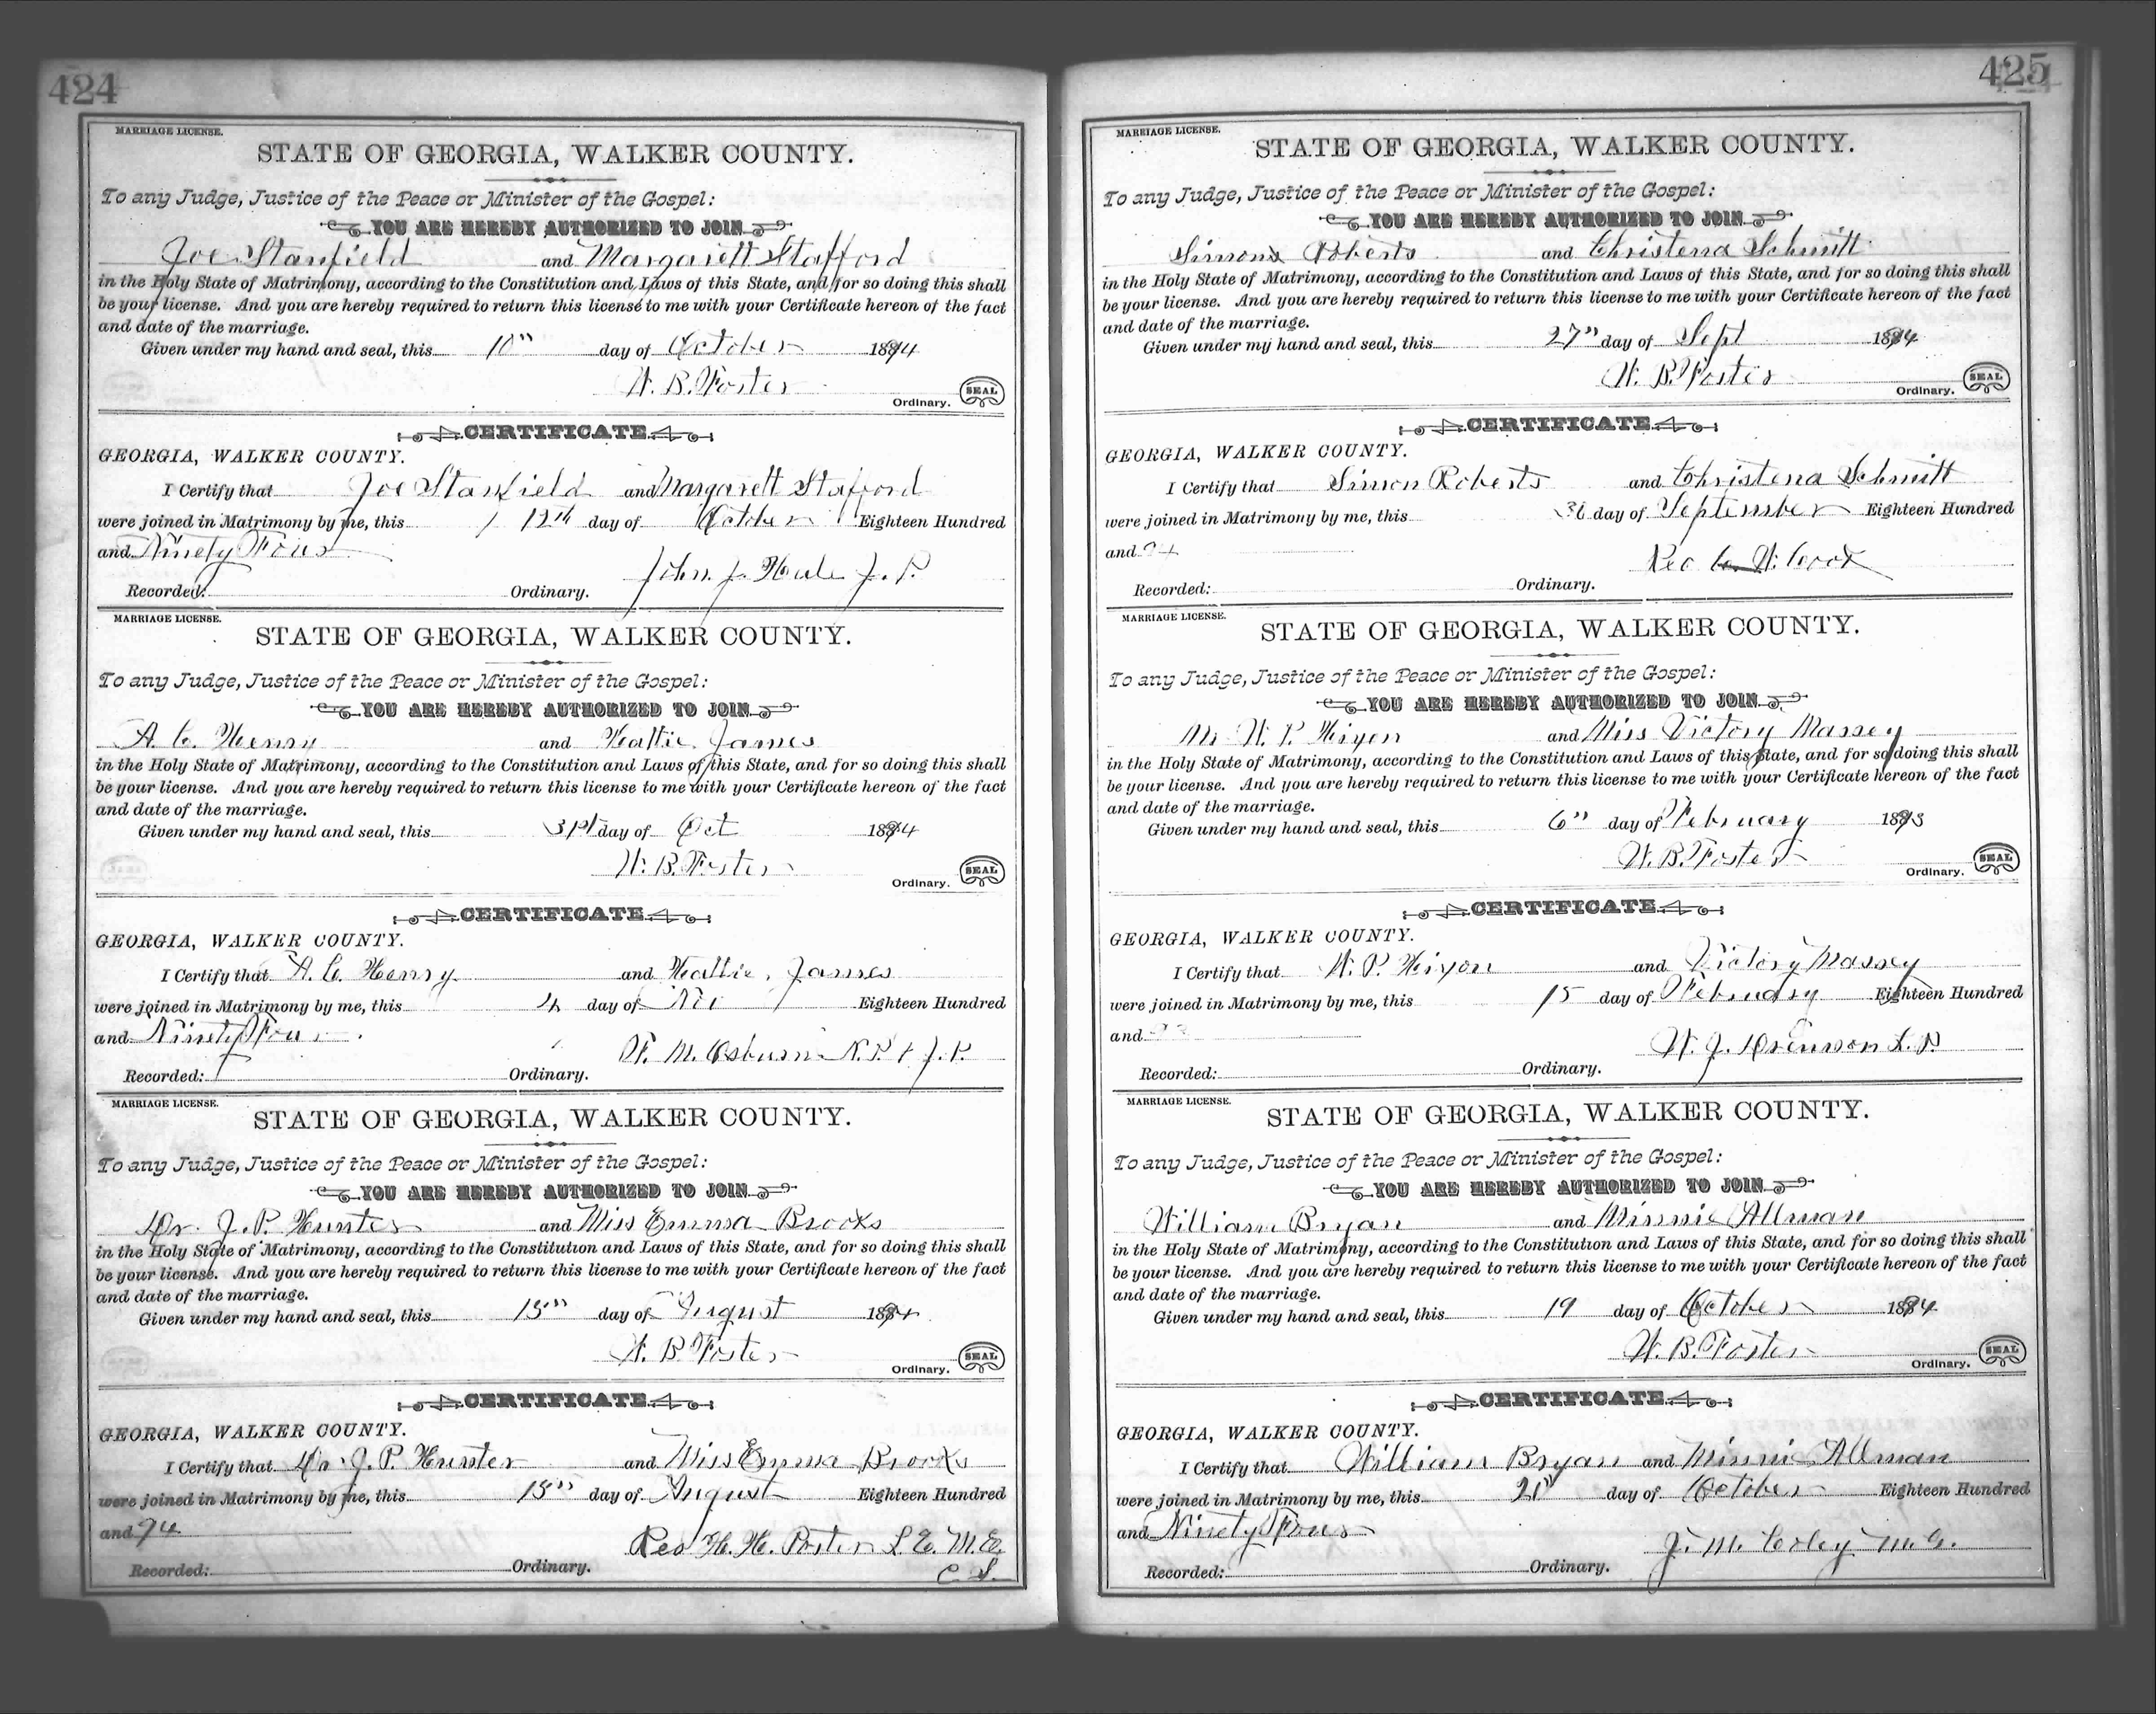 424
MARRIAGE LICENSE.
STATE OF GEORGIA, WALKER COUNTY.
To any Judge, Justice of the Peace or Minister of the Gospel:
YOU ARE HEREBY AUTHORIZED TO JOIN
Joe Stanfield and Margarett Stafford
in the Holy State of Matrimony, according to the Constitution and Laws of this State, and for so doing this shall
be your license. And you are hereby required to return this license to me with your Certificate hereon of the fact
and date of the marriage.
Given under my hand and seal, this 10" day of October 1894
W. B. Foster
Ordinary. SEAL
CERTIFICATE
GEORGIA, WALKER COUNTY.
I Certify that Joe Stanfield and Margarett Stafford
were joined in Matrimony by me, this 12th day of October Eighteen Hundred
and Ninety Four
John. J. J. P.
Recorded: Ordinary.
MARRIAGE LICENSE.
STATE OF GEORGIA, WALKER COUNTY.
To any Judge, Justice of the Peace or Minister of the Gospel:
YOU ARE HEREBY AUTHORIZED TO JOIN
A. C. Henry and Hattie James
in the Holy State of Matrimony, according to the Constitution and Laws of this State, and for so doing this shall
be your license. And you are hereby required to return this license to me with your Certificate hereon of the fact
and date of the marriage.
Given under my hand and seal, this 31st day of Oct 1894
W. B. Foster
Ordinary. SEAL
CERTIFICATE
GEORGIA, WALKER COUNTY.
I Certify that A. C. Henry and Hattie James
were joined in Matrimony by me, this 4 day of Nov Eighteen Hundred
and Ninety Four
M. Osburn N. P. & J. P.
Recorded: Ordinary.
MARRIAGE LICENSE.
STATE OF GEORGIA, WALKER COUNTY.
To any Judge, Justice of the Peace or Minister of the Gospel:
YOU ARE HEREBY AUTHORIZED TO JOIN
Dr. J. P. Hunter and Miss Emma Brooks
in the Holy State of Matrimony, according to the Constitution and Laws of this State, and for so doing this shall
be your license. And you are hereby required to return this license to me with your Certificate hereon of the fact
and date of the marriage.
Given under my hand and seal, this 15" day of August 1894
W. B. Foster
Ordinary. SEAL
CERTIFICATE
GEORGIA, WALKER COUNTY.
I Certify that Dr. J. P. Hunter and Miss Emma Brooks
were joined in Matrimony by me, this 15" day of August Eighteen Hundred
and 94
Rev H. H. Porter L. E. M. E.
C. S.
Recorded: Ordinary.
425
MARRIAGE LICENSE.
STATE OF GEORGIA, WALKER COUNTY.
To any Judge, Justice of the Peace or Minister of the Gospel:
YOU ARE HEREBY AUTHORIZED TO JOIN
Simon Roberts and Christena Schmitt
in the Holy State of Matrimony, according to the Constitution and Laws of this State, and for so doing this shall
be your license. And you are hereby required to return this license to me with your Certificate hereon of the fact
and date of the marriage.
Given under my hand and seal, this 27" day of Sept 1894
W. B. Foster
Ordinary. SEAL
CERTIFICATE
GEORGIA, WALKER COUNTY.
I Certify that Simon Roberts and Christena Schmitt
were joined in Matrimony by me, this 30 day of September Eighteen Hundred
and 94
W. Cook
Recorded: Ordinary.
MARRIAGE LICENSE.
STATE OF GEORGIA, WALKER COUNTY.
To any Judge, Justice of the Peace or Minister of the Gospel:
YOU ARE HEREBY AUTHORIZED TO JOIN
Mr W. P. Hixon and Miss Victory Massey
in the Holy State of Matrimony, according to the Constitution and Laws of this State, and for so doing this shall
be your license. And you are hereby required to return this license to me with your Certificate hereon of the fact
and date of the marriage.
Given under my hand and seal, this 6" day of February 1893
W. B. Foster
Ordinary. SEAL
CERTIFICATE
GEORGIA, WALKER COUNTY.
I Certify that W. P. Hixon and Victory Massey
were joined in Matrimony by me, this 15 day of February Eighteen Hundred
and 93
W. J.
Recorded: Ordinary.
MARRIAGE LICENSE.
STATE OF GEORGIA, WALKER COUNTY.
To any Judge, Justice of the Peace or Minister of the Gospel:
YOU ARE HEREBY AUTHORIZED TO JOIN
William Bryan and Minnie Allman
in the Holy State of Matrimony, according to the Constitution and Laws of this State, and for so doing this shall
be your license. And you are hereby required to return this license to me with your Certificate hereon of the fact
and date of the marriage.
Given under my hand and seal, this 19 day of October 1894
W. B. Foster
Ordinary. SEAL
CERTIFICATE
GEORGIA, WALKER COUNTY.
I Certify that William Bryan and Minnie Allman
were joined in Matrimony by me, this 21" day of October Eighteen Hundred
and Ninety Four
J. M. Coley M. G.
Recorded: Ordinary.